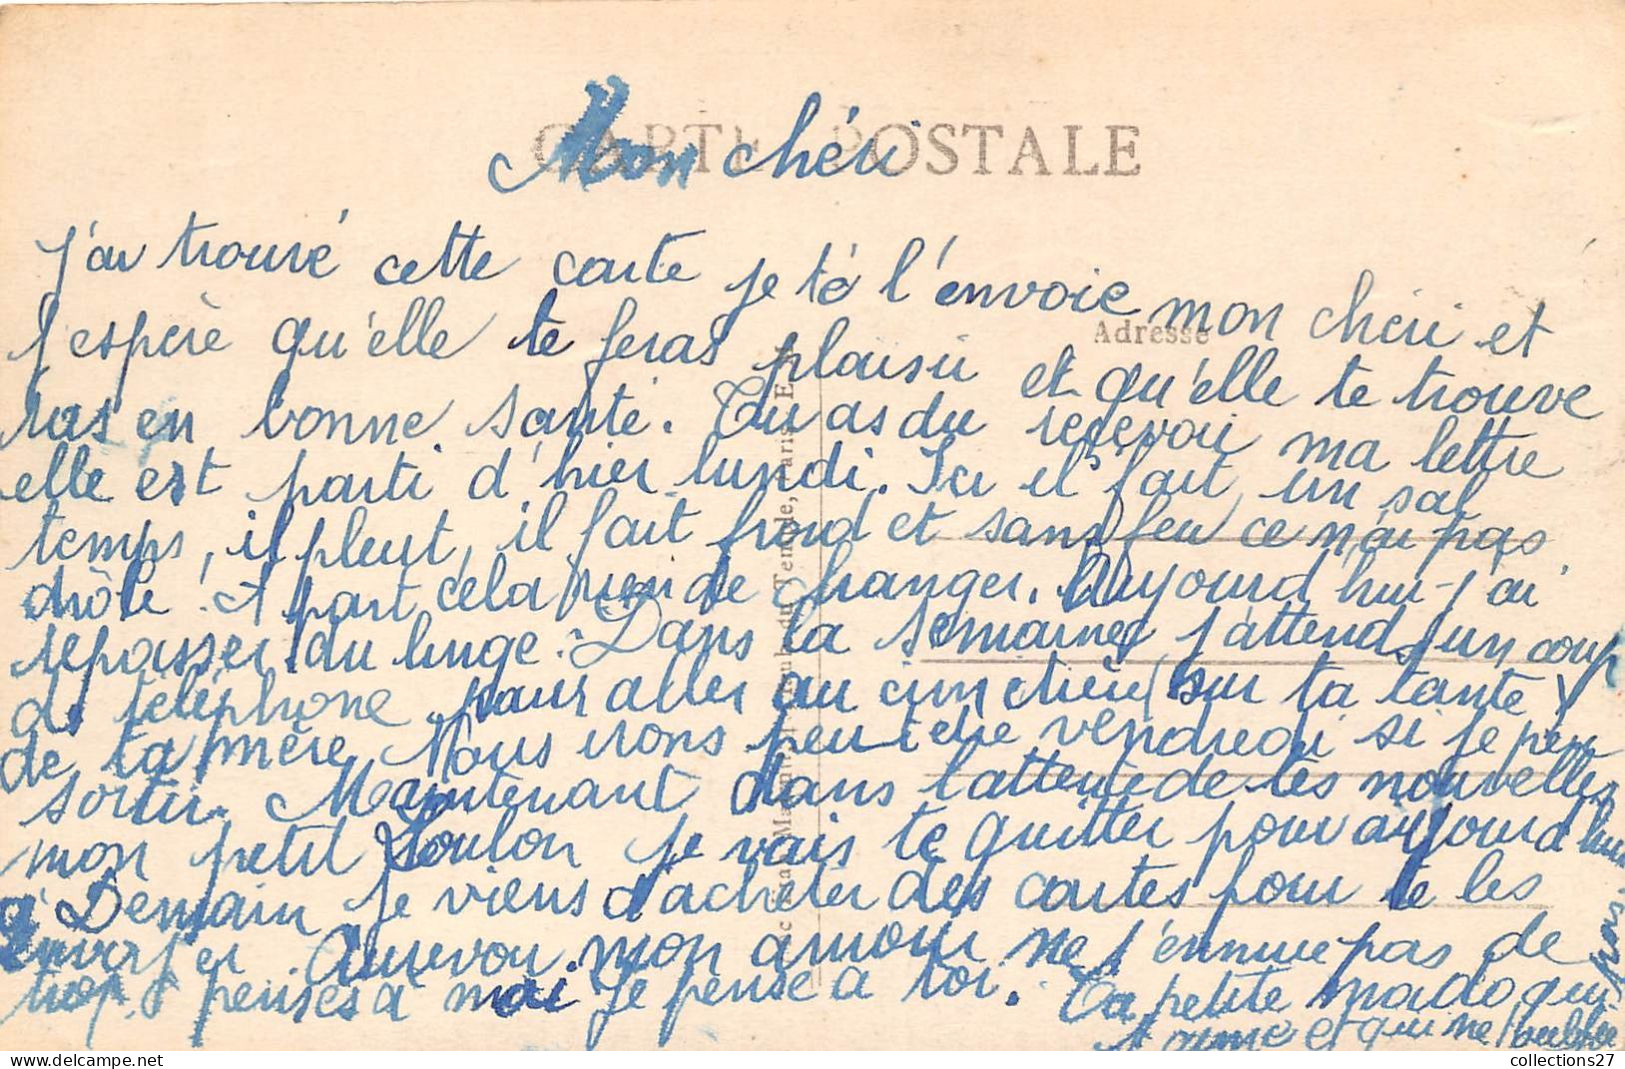 CARTE POSTALE
Mon chéri
J'ai trouvé cette carte je te l'envoie mon chéri et
j'espère qu'elle te feras plaisir et qu'elle te trouve
ras en bonne santé. Tu as du recevoir ma lettre
elle est parti d'hier lundi. Ici il fait un sal
temps, il pleut, il fait froid et sans feu ce n'ai pas
drôle. A part cela rien de changer. Aujourd'hui j'ai
repasser du linge. Dans la semaine j'attends un coup
de téléphone pour aller au cimetière sur ta tante
de ta mère. Nous irons peut être vendredi si je peux
sortir. Maintenant dans l'attente de tes nouvelles
mon petit Loulou je vais te quitter pour aujourd'hui
Demain je viens d'acheter des cartes pour te les
envoyer. Aurevoir mon amour ne t'ennuie pas de
trop. penses a moi je pense a toi. Ta petite mado qui
t'aime et qui ne t'oublie
pas
Adresse
collections27